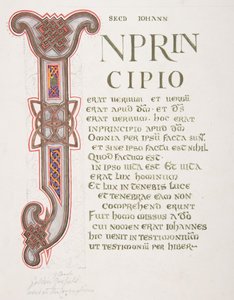 SECD IOHANN
INPRIN
CIPIO
ERAT VERBUM ET VERBŪ
ERAT APUD DM̄ · ET DS̄
ERAT VERBUM · HOC ERAT
IN PRINCIPIO APUD DM̄
OMNIA PER IPSŪ FACTA SUNT
ET SINE IPSO FACTA EST NIHIL
QUOD FACTUM EST ·
IN IPSO UITA EST ET UITA
ERAT LUX HOMINUM
ET LUX IN TENEBIS LUCE
ET TENEBRAE EAM NON
COMPREHEND ERUNT
FUIT HOMO MISSUS A DŌ
CUI NOMEN ERAT IOHANNES
HIC UENIT IN TESTIMONIUM
UT TESTIMONIUM PER HIBER